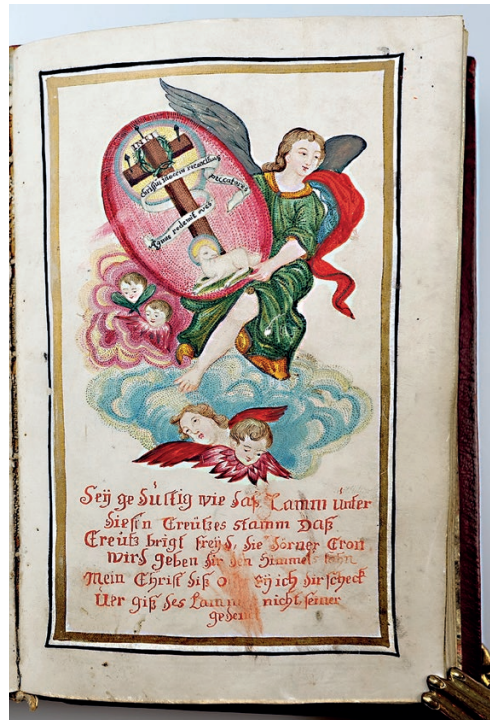 INRI
innocens reconciliavit peccatores
Agnus redemit oves
Seÿ ge dültig wie daß Lamm ünter
diesen Creützes stamm Daß
Creütz brigt freÿd, die dörner Cron
wird geben dir den Himmels lohn
Mein Christ diß ich dir scheck
Üer giß des nicht seiner